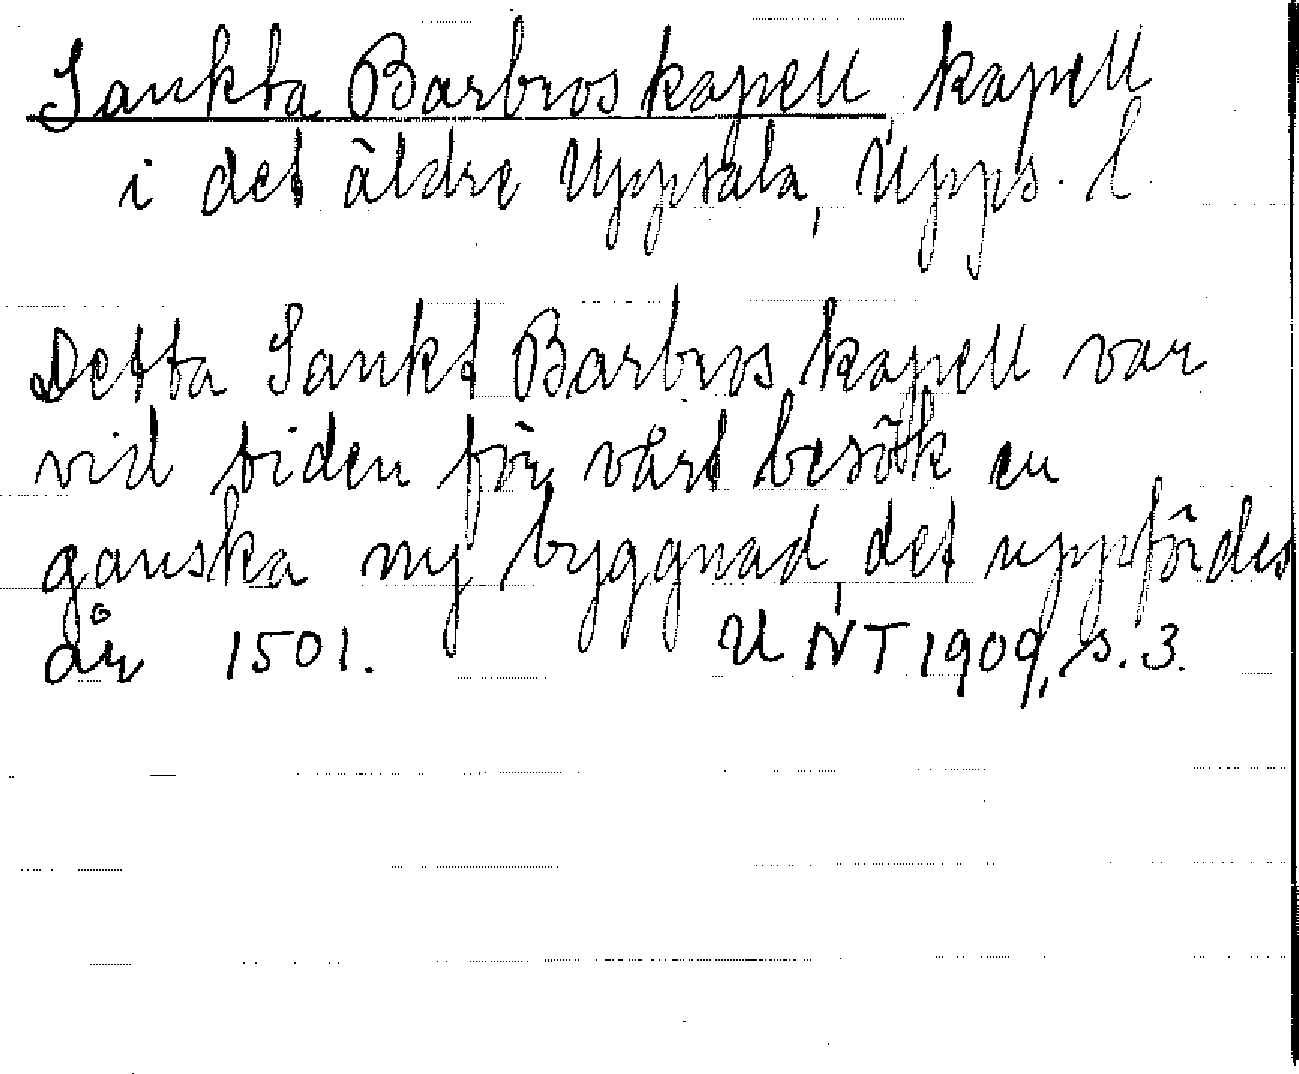 Sankta Barbros kapell, kapell
i det äldre Uppsala, Upps. l.
Detta Sankt Barbros kapell var
vid tiden för vårt besök en
ganska ny byggnad, det uppfördes
år 1501. UNT 1909, s. 3.